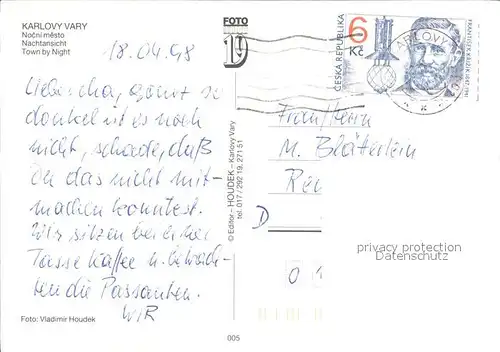 KARLOVY VARY
Noční město
Nachtansicht
Town by Night
18.04.98
FOTO
19
ČESKÁ REPUBLIKA
6
Kč
FRANTIŠEK KŘIŽÍK 1847/1941
KARLOVY
so
dunkel ist es noch
nicht, schade, daß
Du das nicht mit-
machen konntest.
Wir sitzen bei einer
Tasse Kaffee u. betrach-
ten die Passanten.
WIR
© Editor - HOUDEK - Karlovy Vary
tel. 017 / 292 19, 271 51
Frau/Herrn
M. Blätterlein
D
0
privacy protection
Datenschutz
Foto: Vladimír Houdek
005